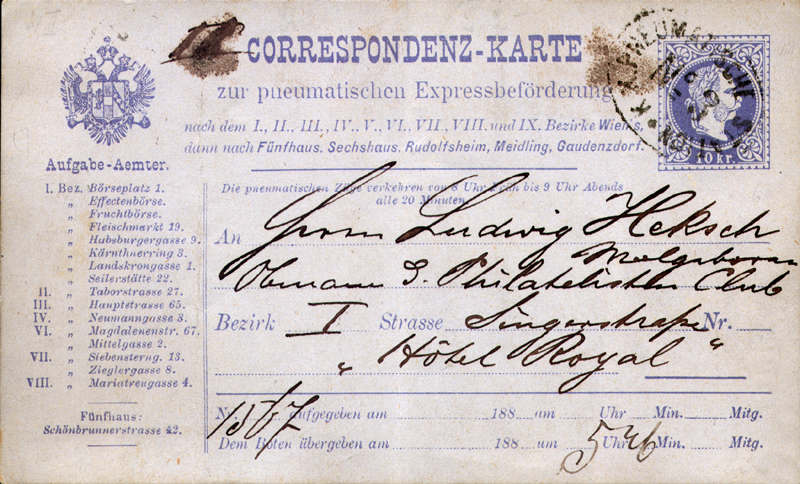 CORRESPONDENZ-KARTE
zur pneumatischen Expressbeförderung
nach dem I., II., III., IV., V., VI., VII., VIII. und IX. Bezirke Wien's,
dann nach Fünfhaus, Sechshaus, Rudolfsheim, Meidling, Gaudenzdorf.
10 kr.
Aufgabe-Aemter.
I. Bez. Börseplatz 1.
„ Effectenbörse.
„ Fruchtbörse.
„ Fleischmarkt 19.
„ Habsburgergasse 9.
„ Kärnthnerring 3.
„ Landskrongasse 1.
„ Seilerstätte 22.
II. „ Taborstrasse 27.
III. „ Hauptstrasse 65.
IV. „ Neumanngasse 3.
VI. „ Magdalenenstr. 67.
„ Mittelgasse 2.
VII. „ Siebensterng. 13.
„ Zieglergasse 8.
VIII. „ Mariatreugasse 4.
Fünfhaus:
Schönbrunnerstrasse 42.
Die pneumatischen Züge verkehren von 8 Uhr Früh bis 9 Uhr Abends
alle 20 Minuten.
An Herrn Ludwig Heksch
Obmann Philatelisten Club
Bezirk I Strasse Singerstrasse Nr.
„ Hôtel Royal „
Nr. 1567 aufgegeben am 188 um Uhr Min. Mitg.
Dem Boten übergeben am 188 um 5 Uhr 46 Min. Mitg.